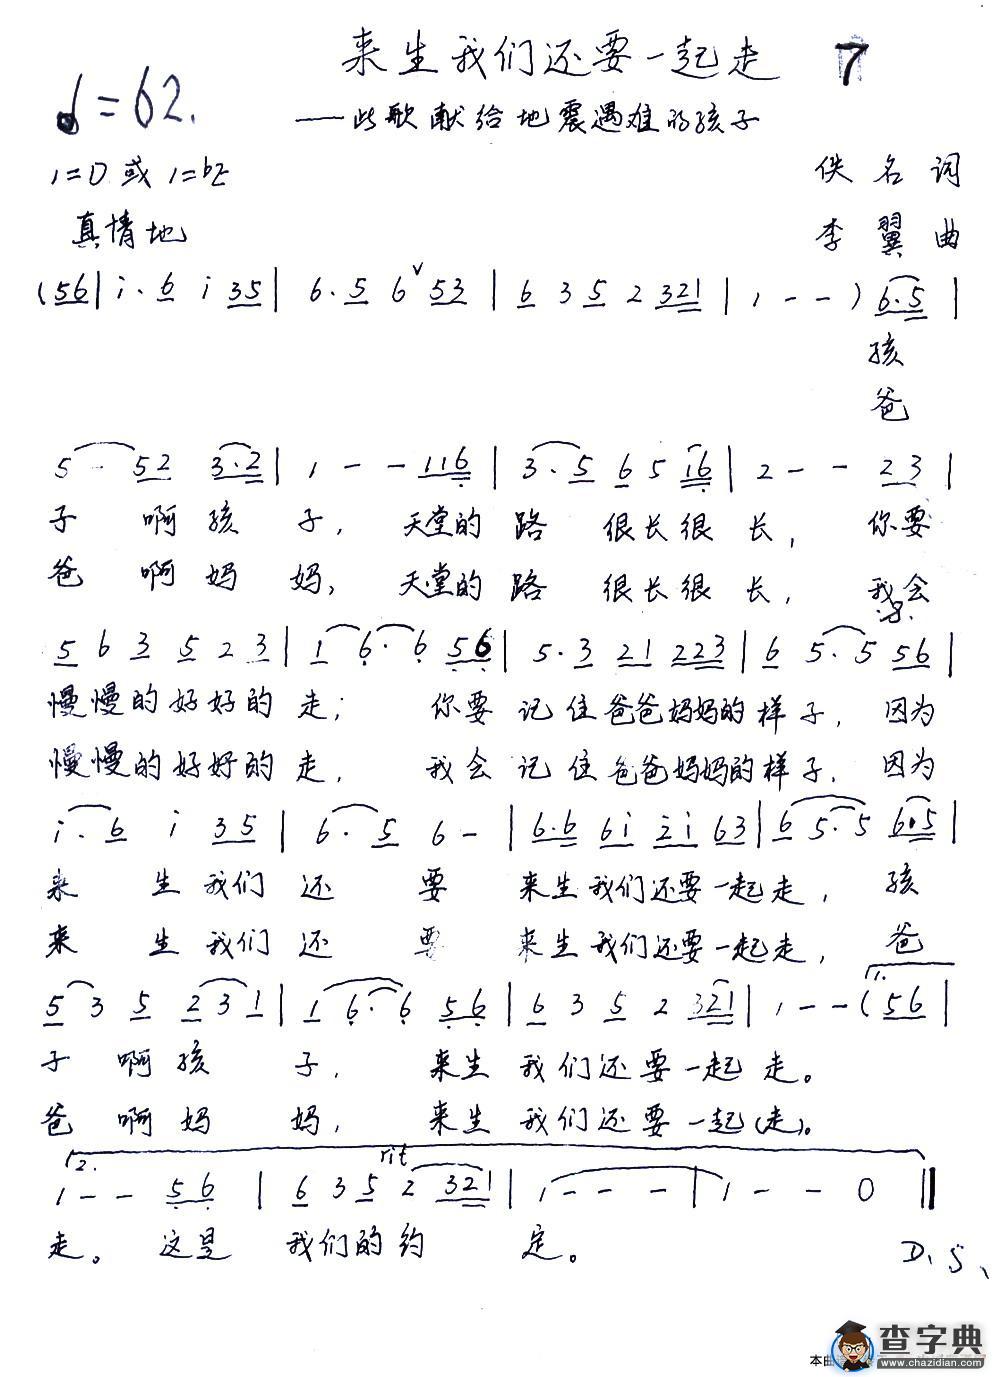 来生我们还要一起走
7
♩=62.
——此歌献给地震遇难的孩子
1=D 或 1=bE
佚名词
真情地
李翼曲
(56| i·6 i 35| 6·5 6ˇ53| 6 3 5 2 321| 1 - - ) 6·5|
孩
爸
5 - 52 3·2| 1 - - 116| 3·5 6 5 16| 2 - - 23|
子 啊孩 子, 天堂的 路 很长很 长, 你要
爸 啊妈 妈, 天堂的 路 很长很 长, 我会
5 6 3 5 2 3| 1 6·6 56| 5·3 21 223| 6 5·5 56|
慢慢的好好的 走; 你要 记 住爸爸妈妈的样子, 因为
慢慢的好好的 走, 我会 记 住爸爸妈妈的样子, 因为
i·6 i 35| 6·5 6 -| 6·6 6i 2i 63| 6 5·5 6·5|
来 生我们 还 要 来生我们还要一起走, 孩
来 生我们 还 要 来生我们还要一起走, 爸
1.
5 3 5 2 3 1| 1 6·6 56| 6 3 5 2 321| 1 - - (56|
子 啊孩 子, 来生 我们还要一起 走。
爸 啊妈 妈, 来生 我们还要一起(走)。
2. rit
1 - - 56| 6 3 5 2 321| 1 - - -| 1 - - 0‖
走。 这是 我们的约 定。
D.S.
查字典
www.chazidian.com
本曲